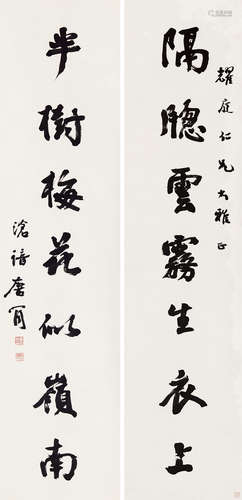 耀庭仁兄大雅正
隔牕雲霧生衣上
半樹梅花似嶺南
滄諳唐肎